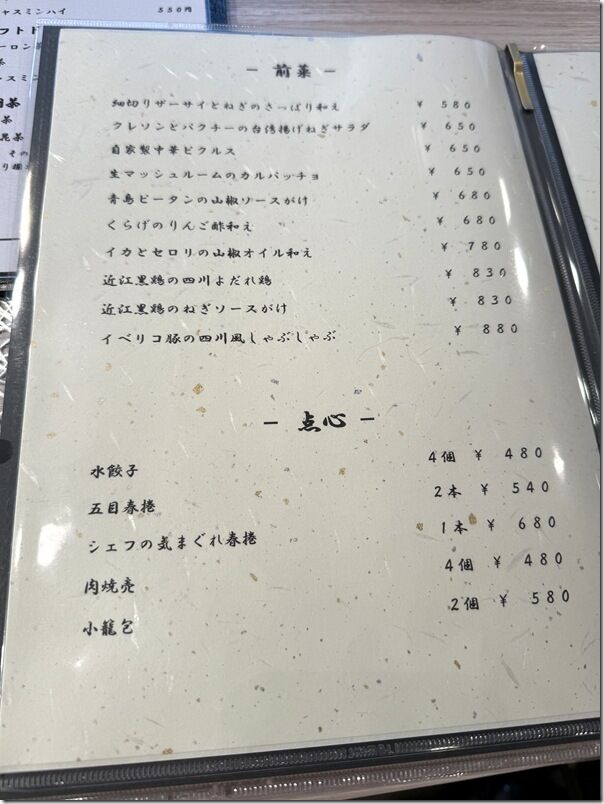 ャスミンハイ 550円
－ 前菜 －
細切りザーサイとねぎのさっぱり和え ¥ 580
クレソンとパクチーの台湾揚げねぎサラダ ¥ 650
自家製中華ピクルス ¥ 650
生マッシュルームのカルパッチョ ¥ 650
青島ピータンの山椒ソースがけ ¥ 680
くらげのりんご酢和え ¥ 680
イカとセロリの山椒オイル和え ¥ 780
近江黒鶏の四川よだれ鶏 ¥ 830
近江黒鶏のねぎソースがけ ¥ 830
イベリコ豚の四川風しゃぶしゃぶ ¥ 880
－ 点心 －
水餃子 4個 ¥ 480
五目春捲 2本 ¥ 540
シェフの気まぐれ春捲 1本 ¥ 680
肉焼売 4個 ¥ 480
小籠包 2個 ¥ 580